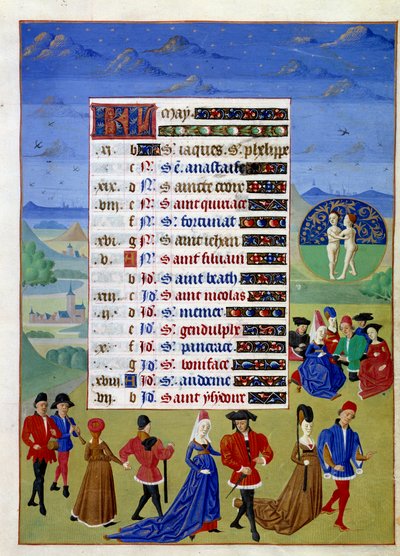 KL May.
.xi. b S. iaques. S. phelippe
c N. Se. anastaise
.xix. d N. Saincte croix
.viii. e N. Saint quiriace
f N. S. fortunat
.xvi. g N. Saint iehan
.v. A N. Saint siluain
b Jd. Saint beath
.xiii. c Jd. Saint nicolas
.ii. d Jd. S. memer
e Jd. S. gendulphe
.x. f Jd. S. pancrace
g Jd. S. boniface
.xviii. A Jd. S.
.vii. b Jd. Saint